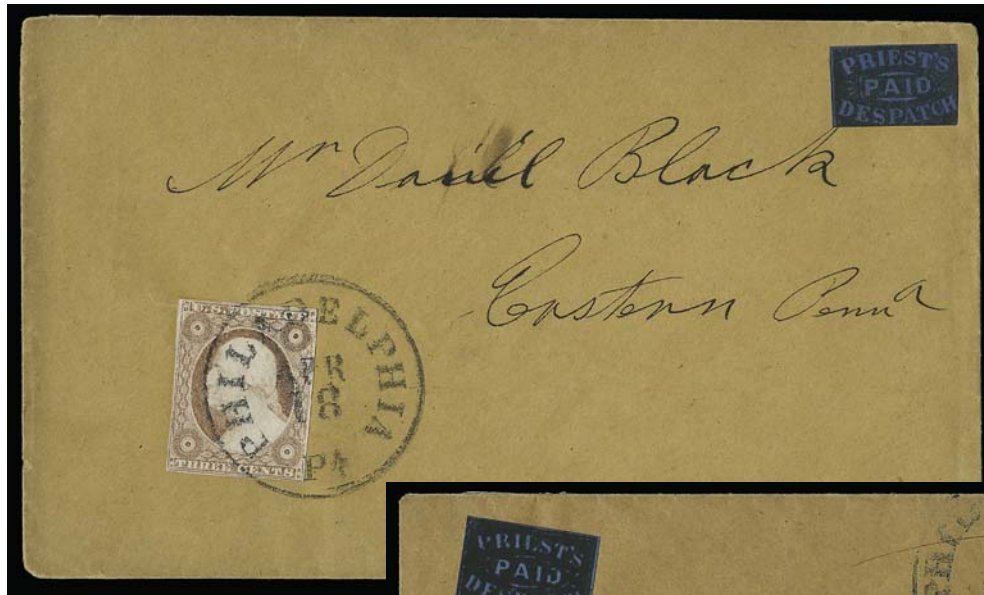 PRIEST'S
PAID
DESPATCH
Mr Daniel Black
Eastern Penna
U.S. POSTAGE
THREE CENTS
PHILADELPHIA
PA
PRIEST'S
PAID
PHIL